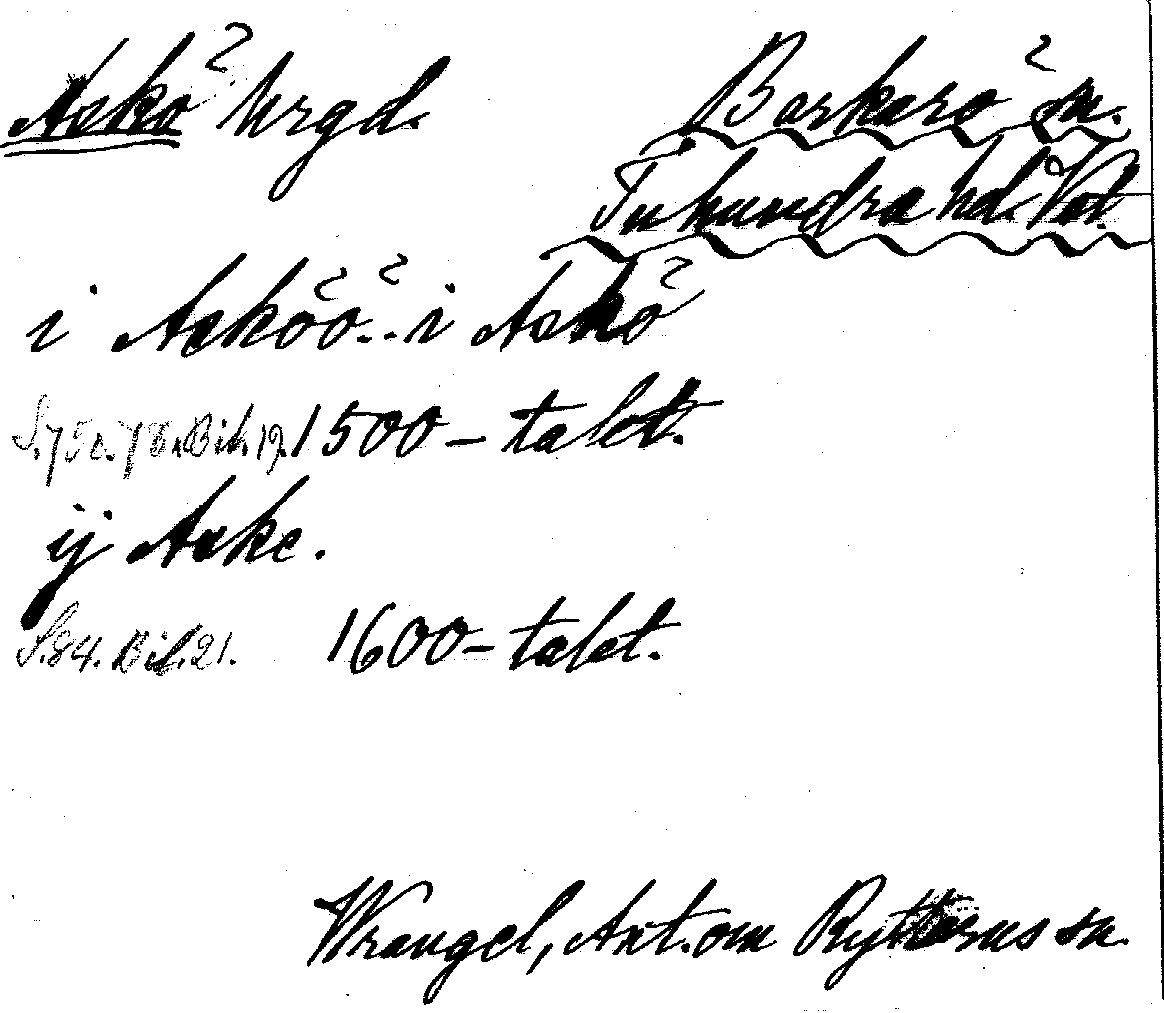 Askö hrgd. Barkarö sn.
Tuhundra hd. Vstl.
i Asköö.. i Askö
S. 75 o. 78. Bil. 19. 1500-talet.
ij Aske.
S. 84. Bil. 21. 1600-talet.
Wrangel, Ant. om Rytterns sn.